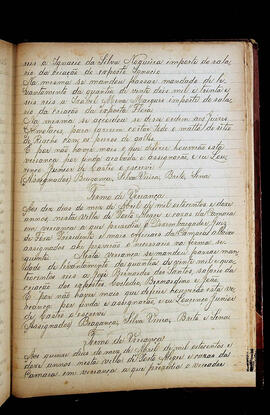 reis a Ignacio da Silva Nogueira importe do sala-
rio da criação do exposto Ignacio
Na mesma se mandou passar mandado de le-
vantamento da quantia de vinte dois mil e trinta e
seis reis a Izabel Maria Marques importe do sala-
rio da criação da exposta
Na mesma se accordou se desse ordem aos Juizes
para fazerem cortar todo o matto do sitio
do Riacho
E por não haver mais o que deferir houverão esta
vereança por finda acabada e assignarão, e eu Lou-
renço Junior de Castro o escrevi
(Assignados) Bragança, Silva Vieira, Brito, Sena
Termo de Vereança
Aos dez dias do mez de Abril de mil oitocentos e doze
annos nesta villa de Porto Alegre e casas da Camara
em vereança a que presidio o Desembargador, Juiz
de Fora Presidente e mais officiaes da Camara abaixo
assignados ahi proverão e vereárão na forma se-
guinte. Nesta vereança se mandou passar man-
dado de levantamento da quantia de vinte mil e qua-
trocentos reis a José Bernardes dos Santos, salario da
criação dos expostos Bernardina e João.
E por não haver mais que deferir houverão esta ve-
reança por finda e assignarão, e eu Lourenço Junior
de Castro o escrevi
(Assignados) Bragança, Silva Vieira, Brito e Sena
Termo de Vereança
Aos quinze dias do mez de Abril de mil oitocentos e
doze annos nesta villa de Porto Alegre e casas da
Camara em vereança a que presidio o vereador